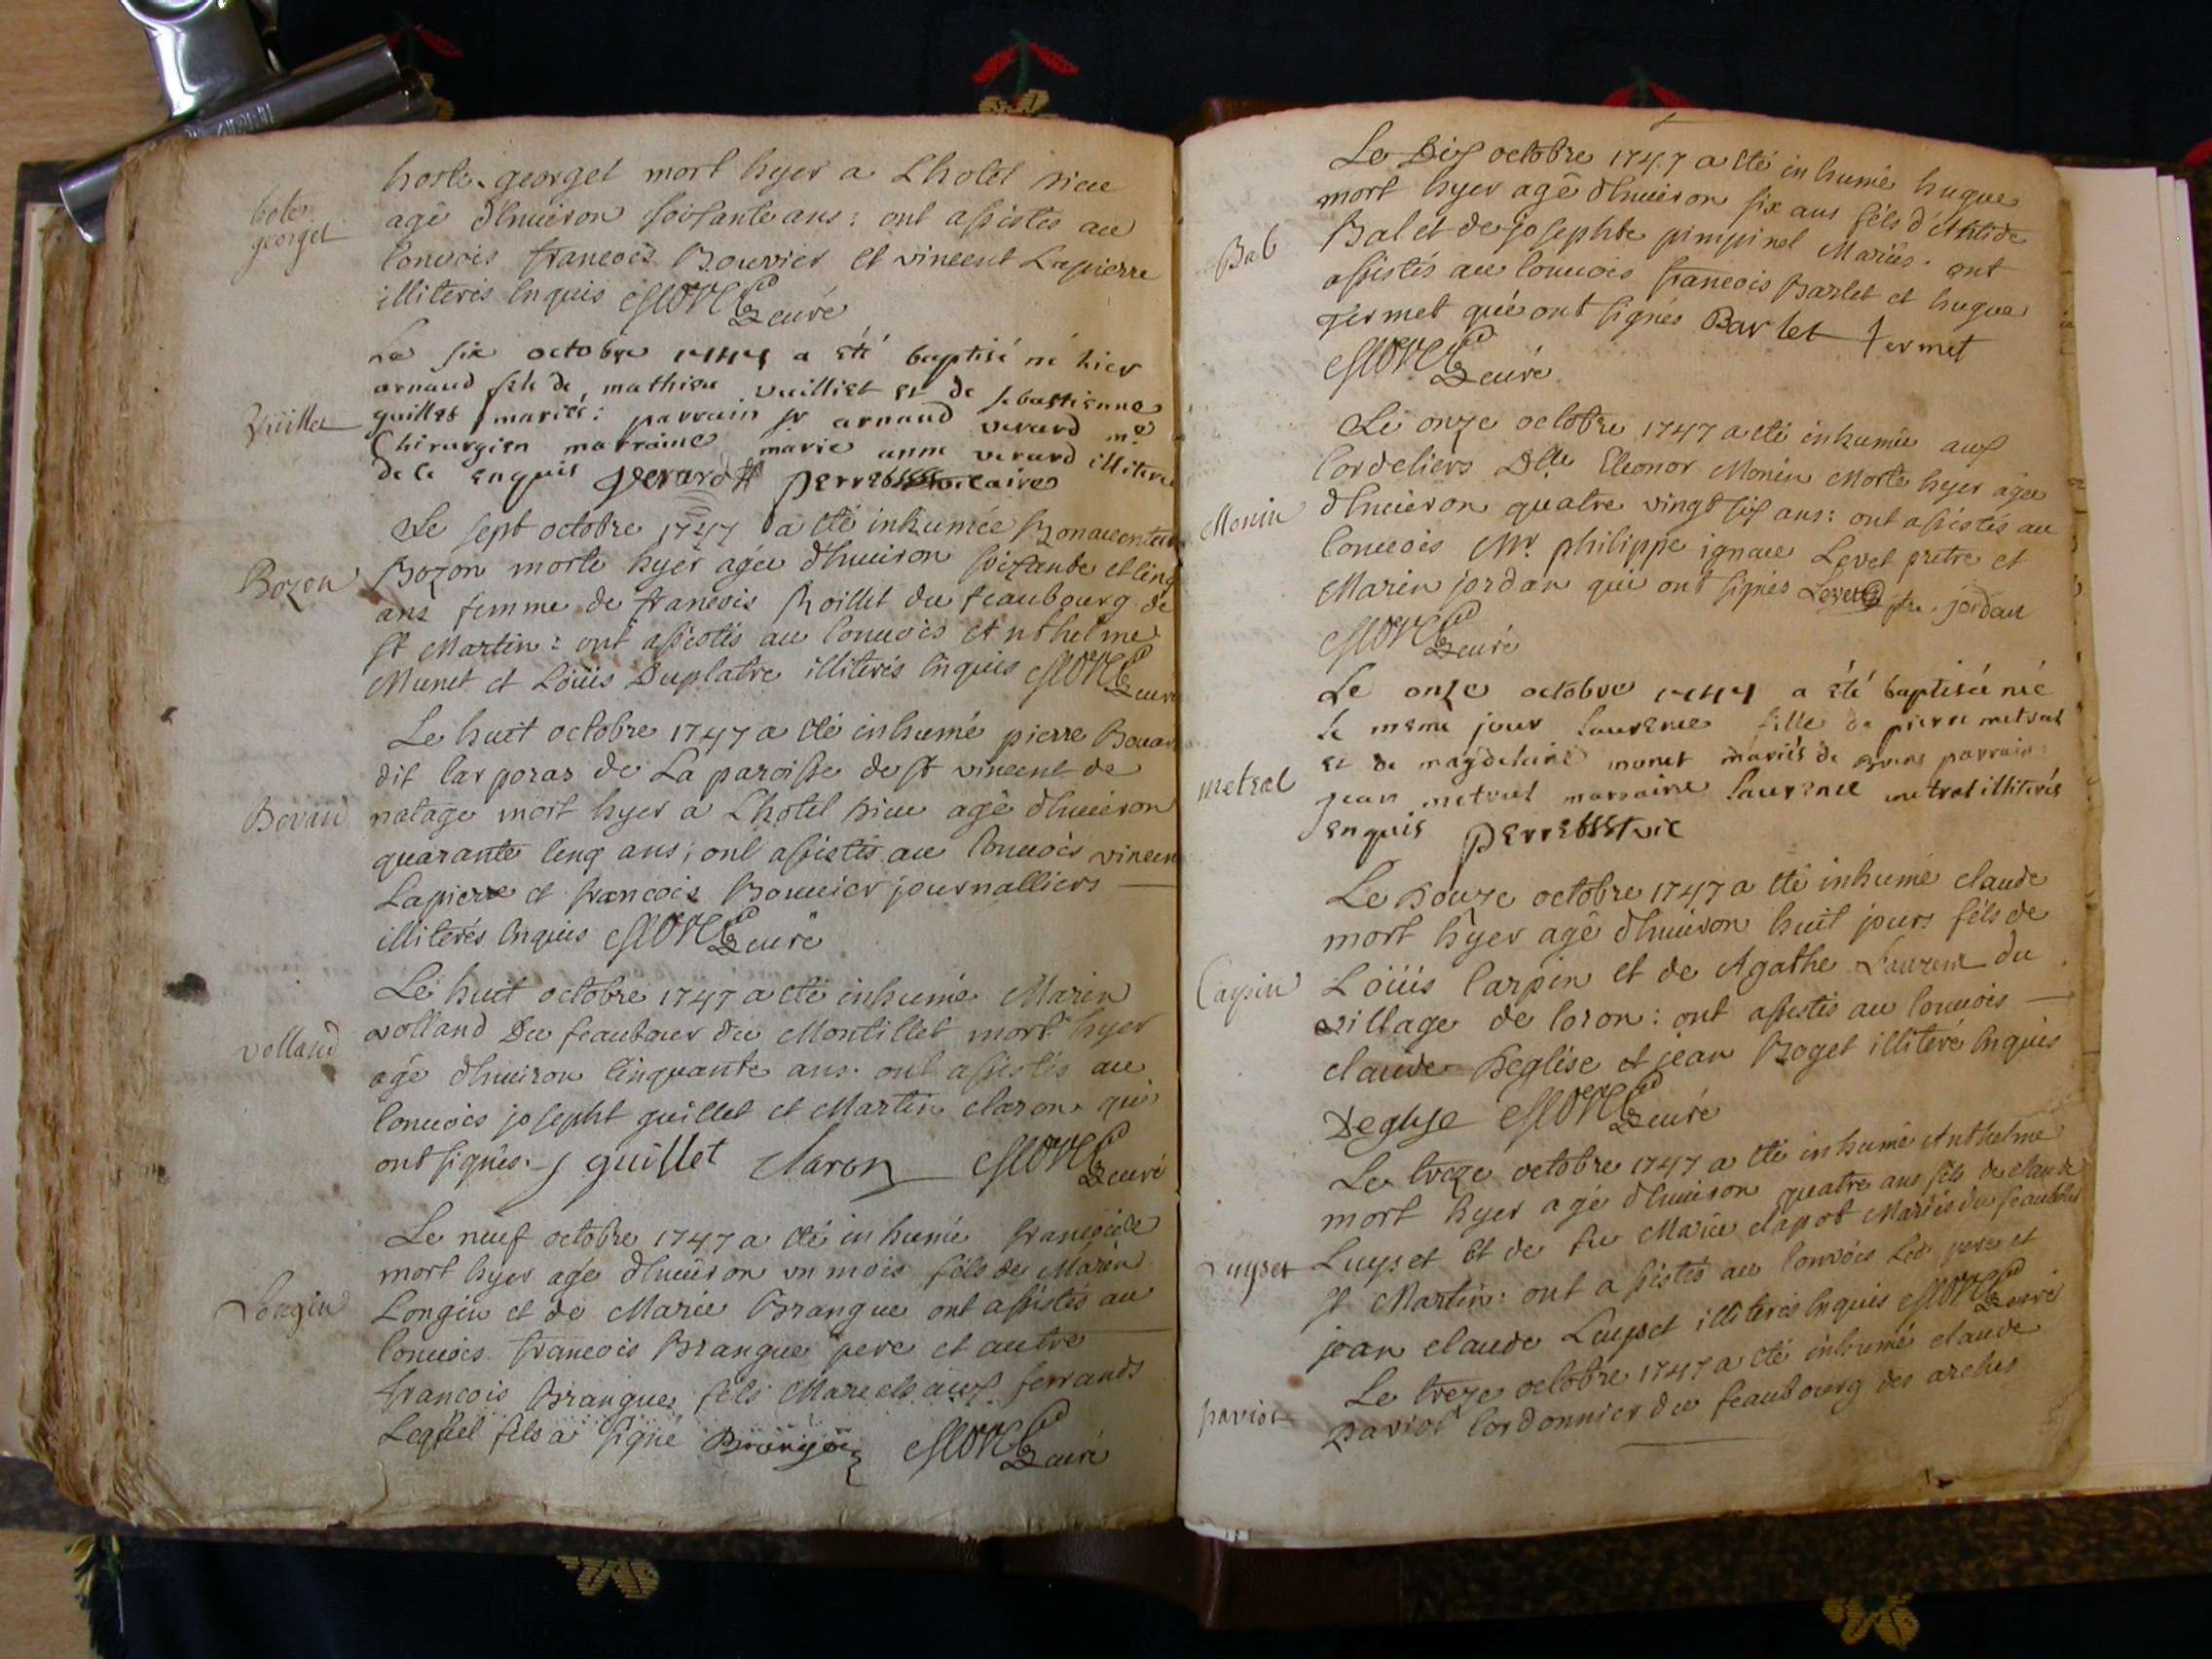 hoste georget mort hyer a Lhotel Dieu
hote
georget
agé d'huiron soixante ans: ont assistés au
Convois francois Bouvier et vincent Lapierre
illiterés Enquis curé
Le six octobre 1747 a été baptisé né hier
arnaud fils de mathieu vuilliet et de sebastienne
guillet mariés: parrain sr arnaud verard me
Chirurgien marraine marie anne verard illiterée
de ce enquis verard perret vicaire
Le sept octobre 1747 a été inhumée Bonaventure
Bozon
Bozon morte hyer agée d'huiron soixante et cinq
ans femme de francois Roillet du feaubourg de
st Martin: ont assistés au Convois Anthelme
Munet et Loüis Duplatre illiterés Enquis curé
Le huit octobre 1747 a été inhumé pierre Bovan
dit Carporas de La paroisse de st vincent de
Bovan
natage mort hyer a Lhotel Dieu agé d'huiron
quarante Cinq ans; ont assistés au Convois vincent
Lapierre et francois Bouvier journalliers
illiterés Enquis curé
Le huit octobre 1747 a été inhumé Marin
volland
volland Du feaubour du Montillet mort hyer
agé d'huiron Cinquante ans. ont assistés au
Convois josepht guillet et Martin claron qui
ont signés. j guillet claron curé
Le neuf octobre 1747 a été inhumé francois
mort hyer agé d'huiron un mois fils de Marin
Longin
Longin et de Marie Brangue ont assistés au
Convois francois Brangue pere et autre
francois Brangue fils Marechaux ferrands
Lequel fils a signé curé
Le Dix octobre 1747 a été inhumé hugue
mort hyer agé d'huiron six ans fils d'
Bal
Bal et de josephte pimpinel Mariés. ont
assistés au Convois francois Barlet et hugue
fermet qui ont signés Barlet fermet
curé
Le onze octobre 1747 a été inhumée aux
Cordeliers Dlle Eleonor Monin Morte hyer agée
Monin
d'huiron quatre vingt six ans: ont assistés au
Convois Mr philippe ignace Levet pretre et
Marin jordan qui ont signés Levet ptre. jordan
curé
Le onze octobre 1747 a été baptisée née
le meme jour Laurence fille de pierre metral
et de magdelaine monet mariés de parrain
metral
jean metral marraine Laurence metral illiterés
enquis perret vic
Le Douze octobre 1747 a été inhumé claude
mort hyer agé d'huiron huit jours fils de
Carpin
Loüis Carpin et de Agathe Laurent du
village de Coron: ont assistés au Convois
claude Deglise et jean Roget illiteré Enquis
Deglise curé
Le treze octobre 1747 a été inhumé Anthelme
mort hyer agé d'huiron quatre ans fils de claude
Luyset
Luyset Et de fue Marie clapot Mariés du feaubour
st Martin: ont assistés au Convois Led. pere et
jean claude Luyset illiterés Enquis curé
Le treze octobre 1747 a été inhumé claude
paviot
paviot Cordonnier du feaubourg des arches